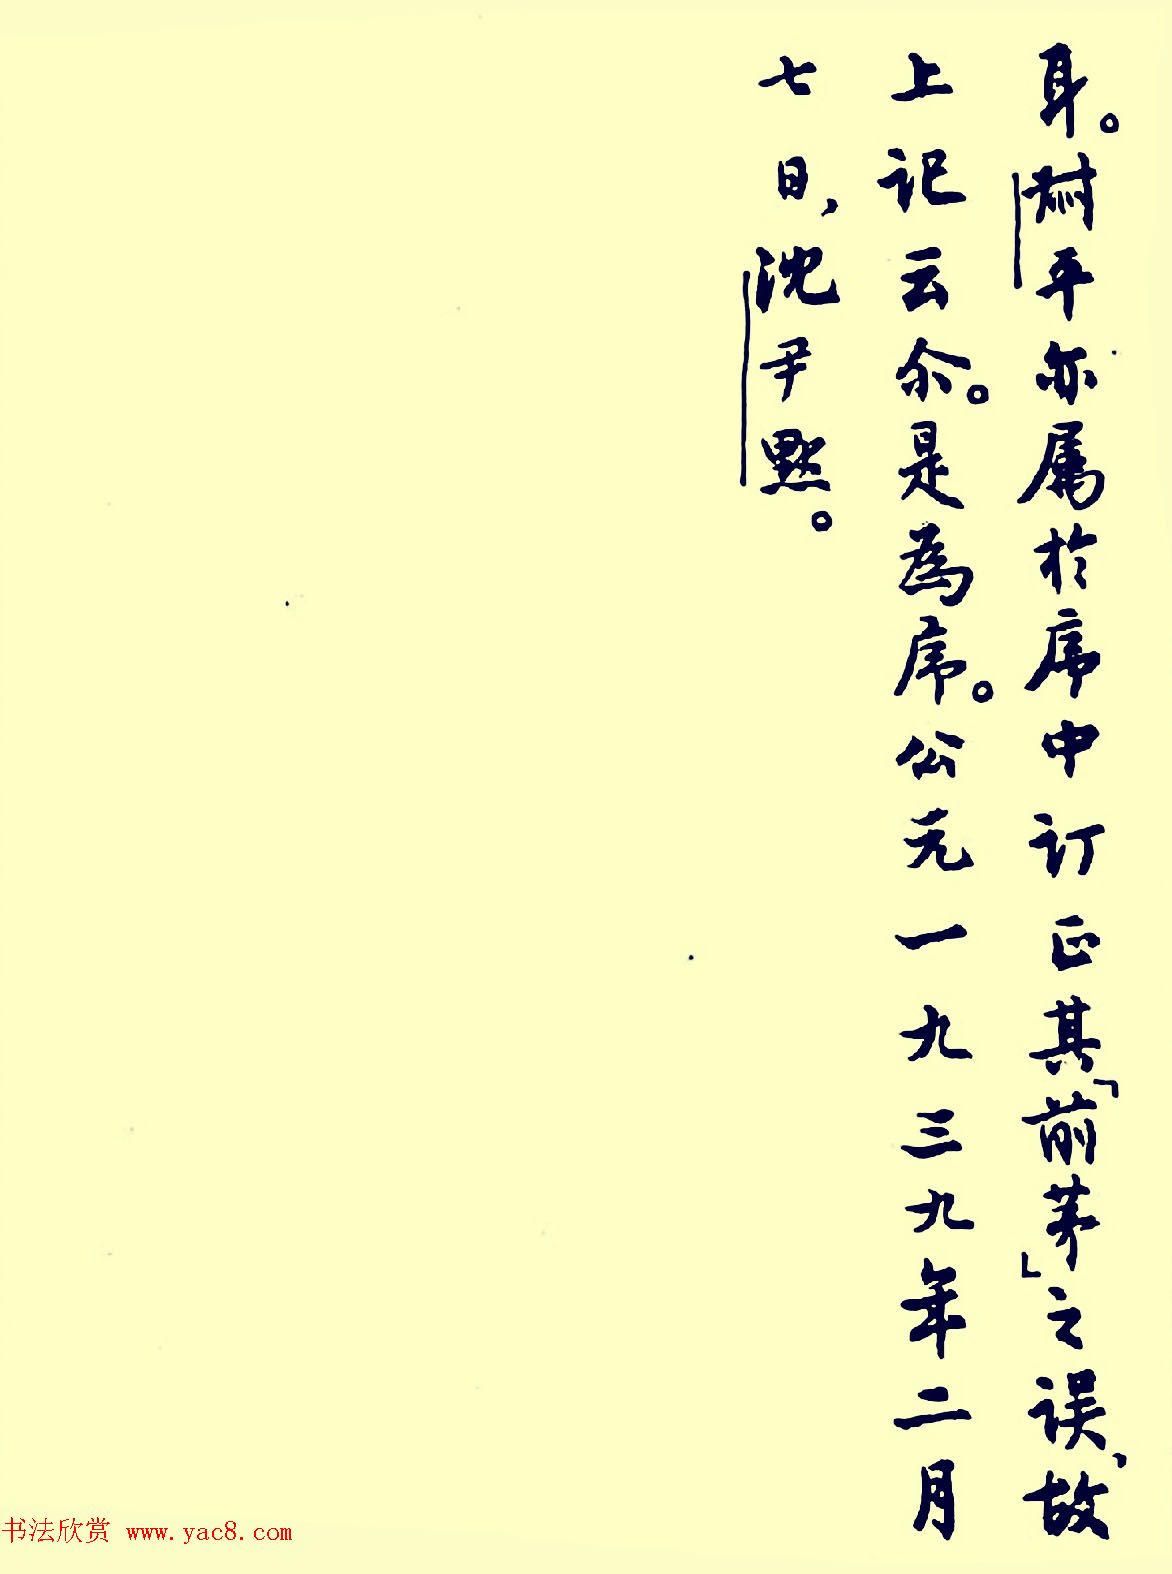 耳。平亦属於序中订正其「前茅」之误、故
上记云尒。是為序。公元一九三九年二月
七日，沈尹黙。
书法欣赏 www.yac8.com